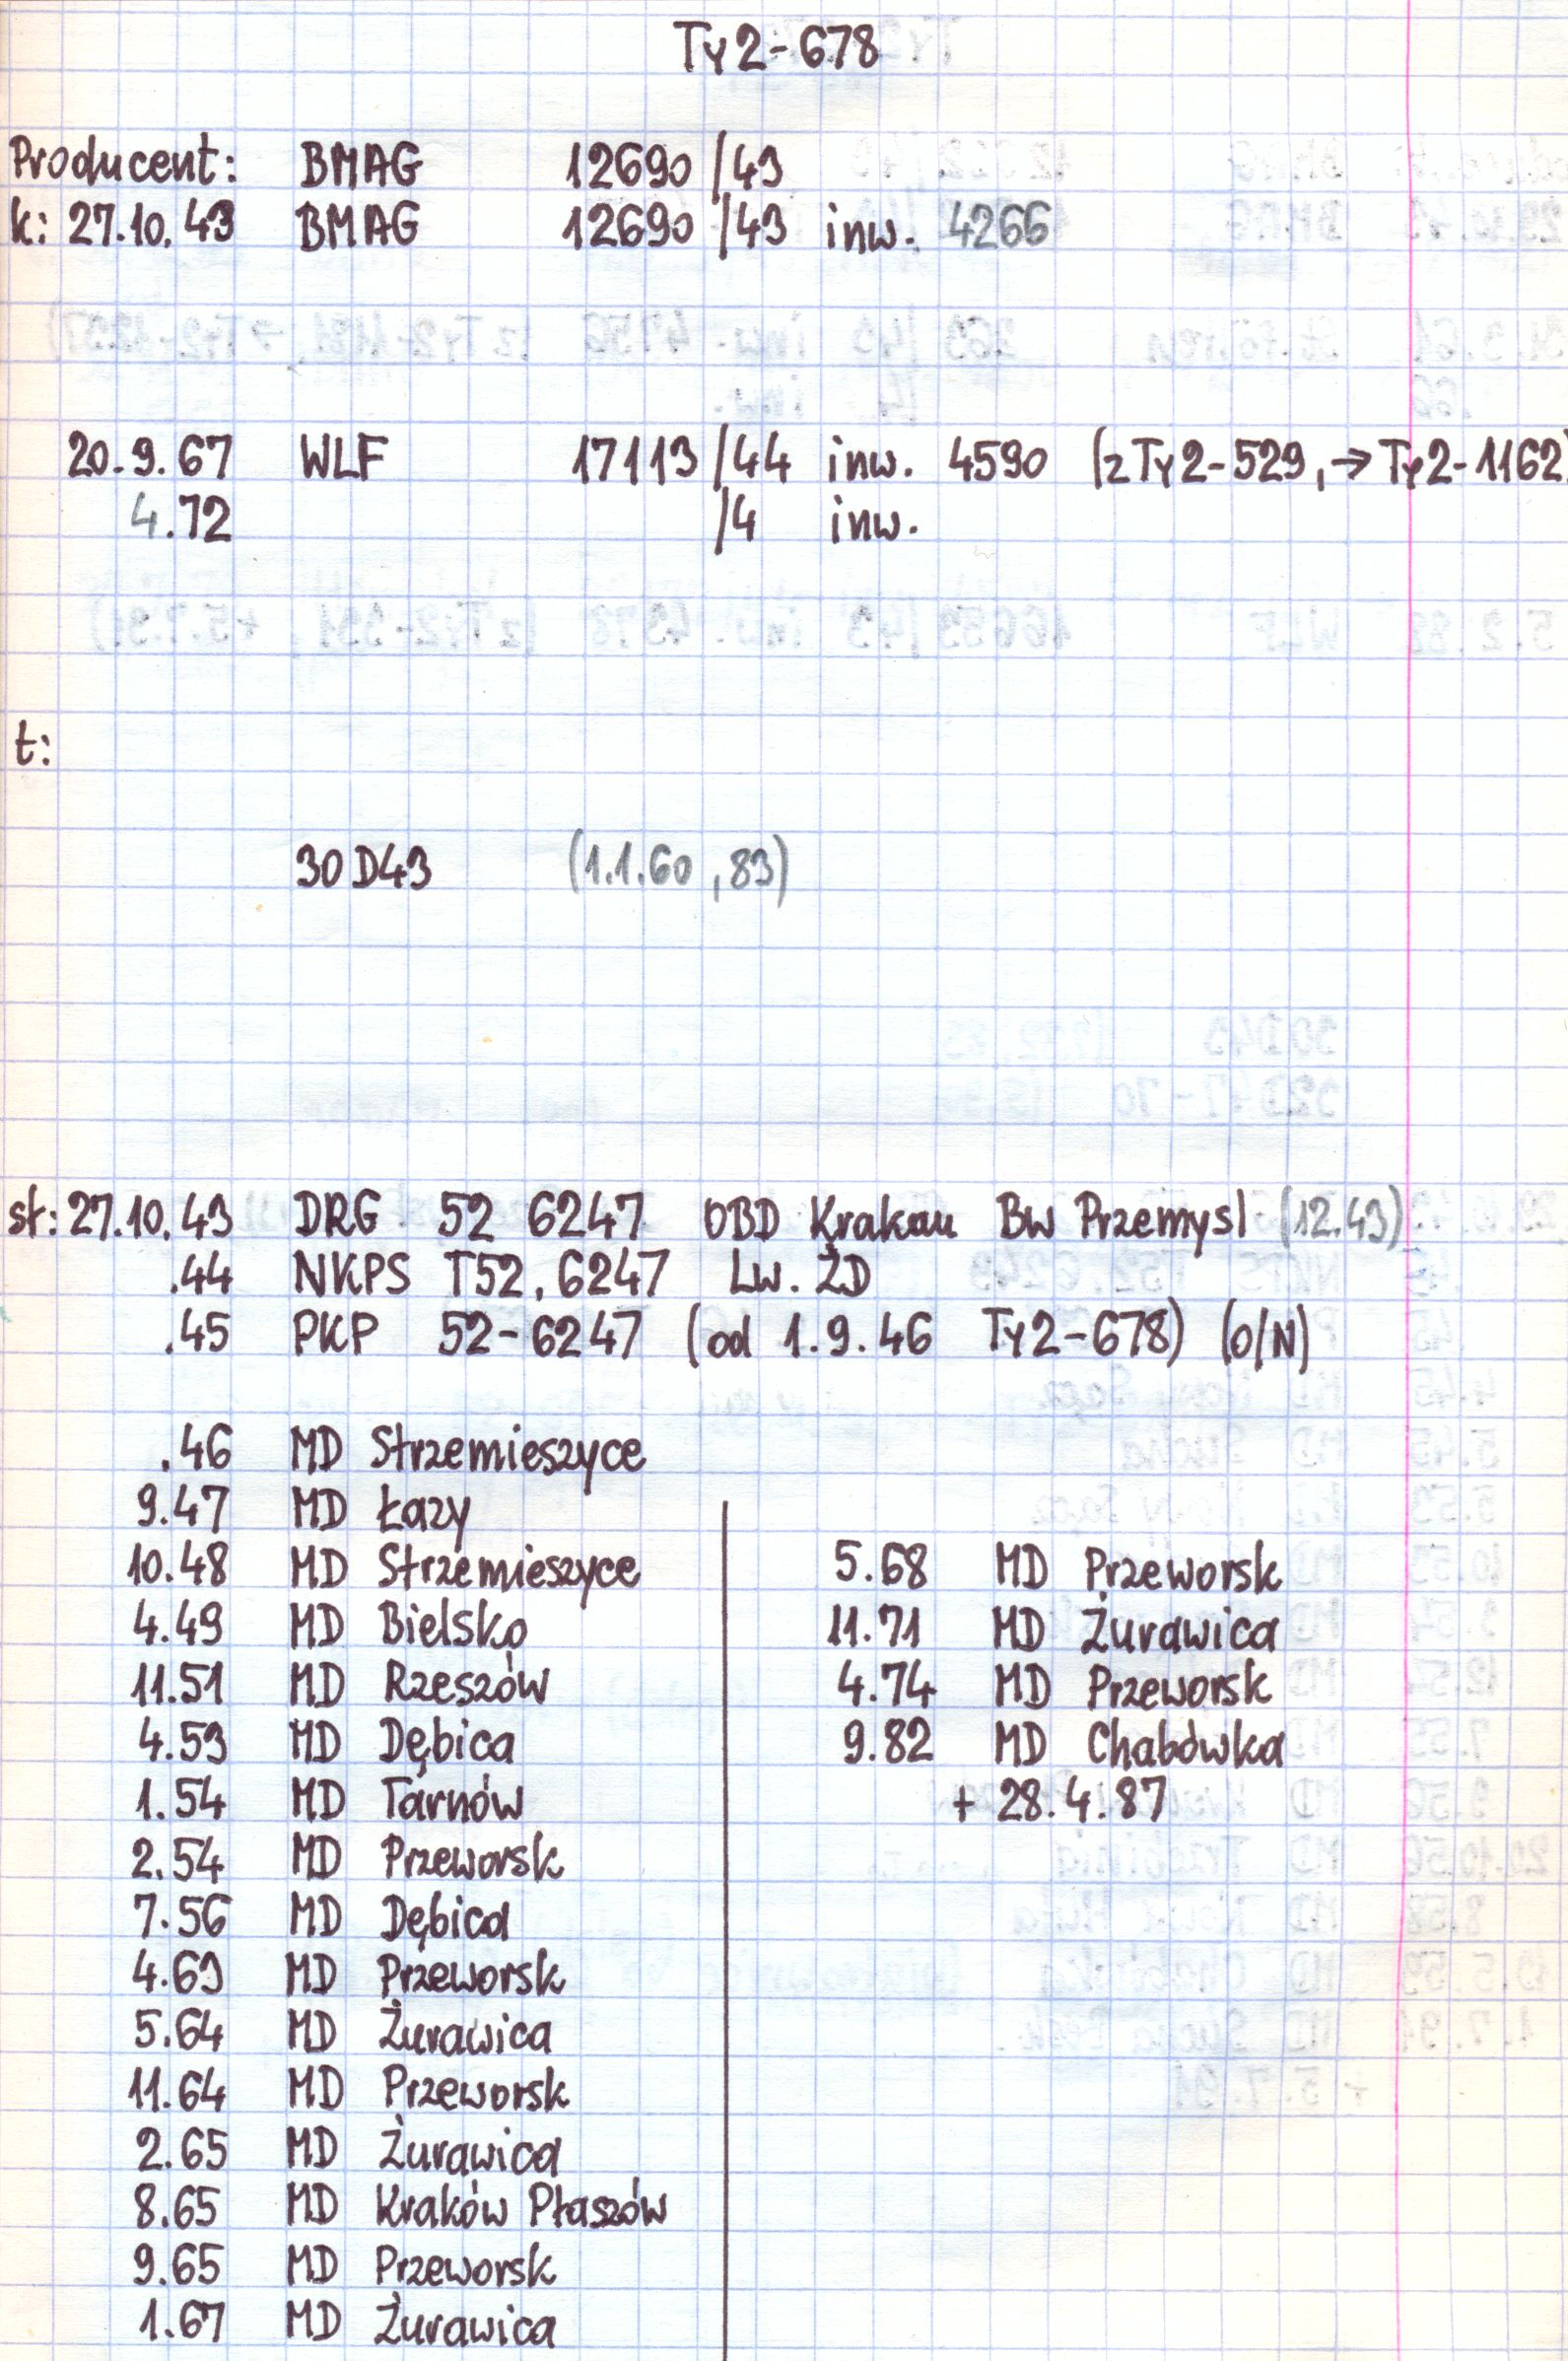 Ty2-678
Producent: BMAG 12690/43
k: 27.10.43 BMAG 12690/43 inw. 4266
20.9.67 WLF 17113/44 inw. 4590 (z Ty2-529, → Ty2-1162)
4.72 /4 inw.
t:
30D43 (1.1.60, 83)
st: 27.10.43 DRG 52 6247 OBD Krakau Bw Przemysl (12.43)
.44 NKPS T52.6247 Lw. ŻD
.45 PKP 52-6247 (od 1.9.46 Ty2-678) (O/N)
.46 MD Strzemieszyce
9.47 MD Łazy
10.48 MD Strzemieszyce
4.49 MD Bielsko
11.51 MD Rzeszów
4.53 MD Dębica
1.54 MD Tarnów
2.54 MD Przeworsk
7.56 MD Dębica
4.63 MD Przeworsk
5.64 MD Żurawica
11.64 MD Przeworsk
2.65 MD Żurawica
8.65 MD Kraków Płaszów
9.65 MD Przeworsk
1.67 MD Żurawica
5.68 MD Przeworsk
11.71 MD Żurawica
4.74 MD Przeworsk
9.82 MD Chabówka
+ 28.4.87